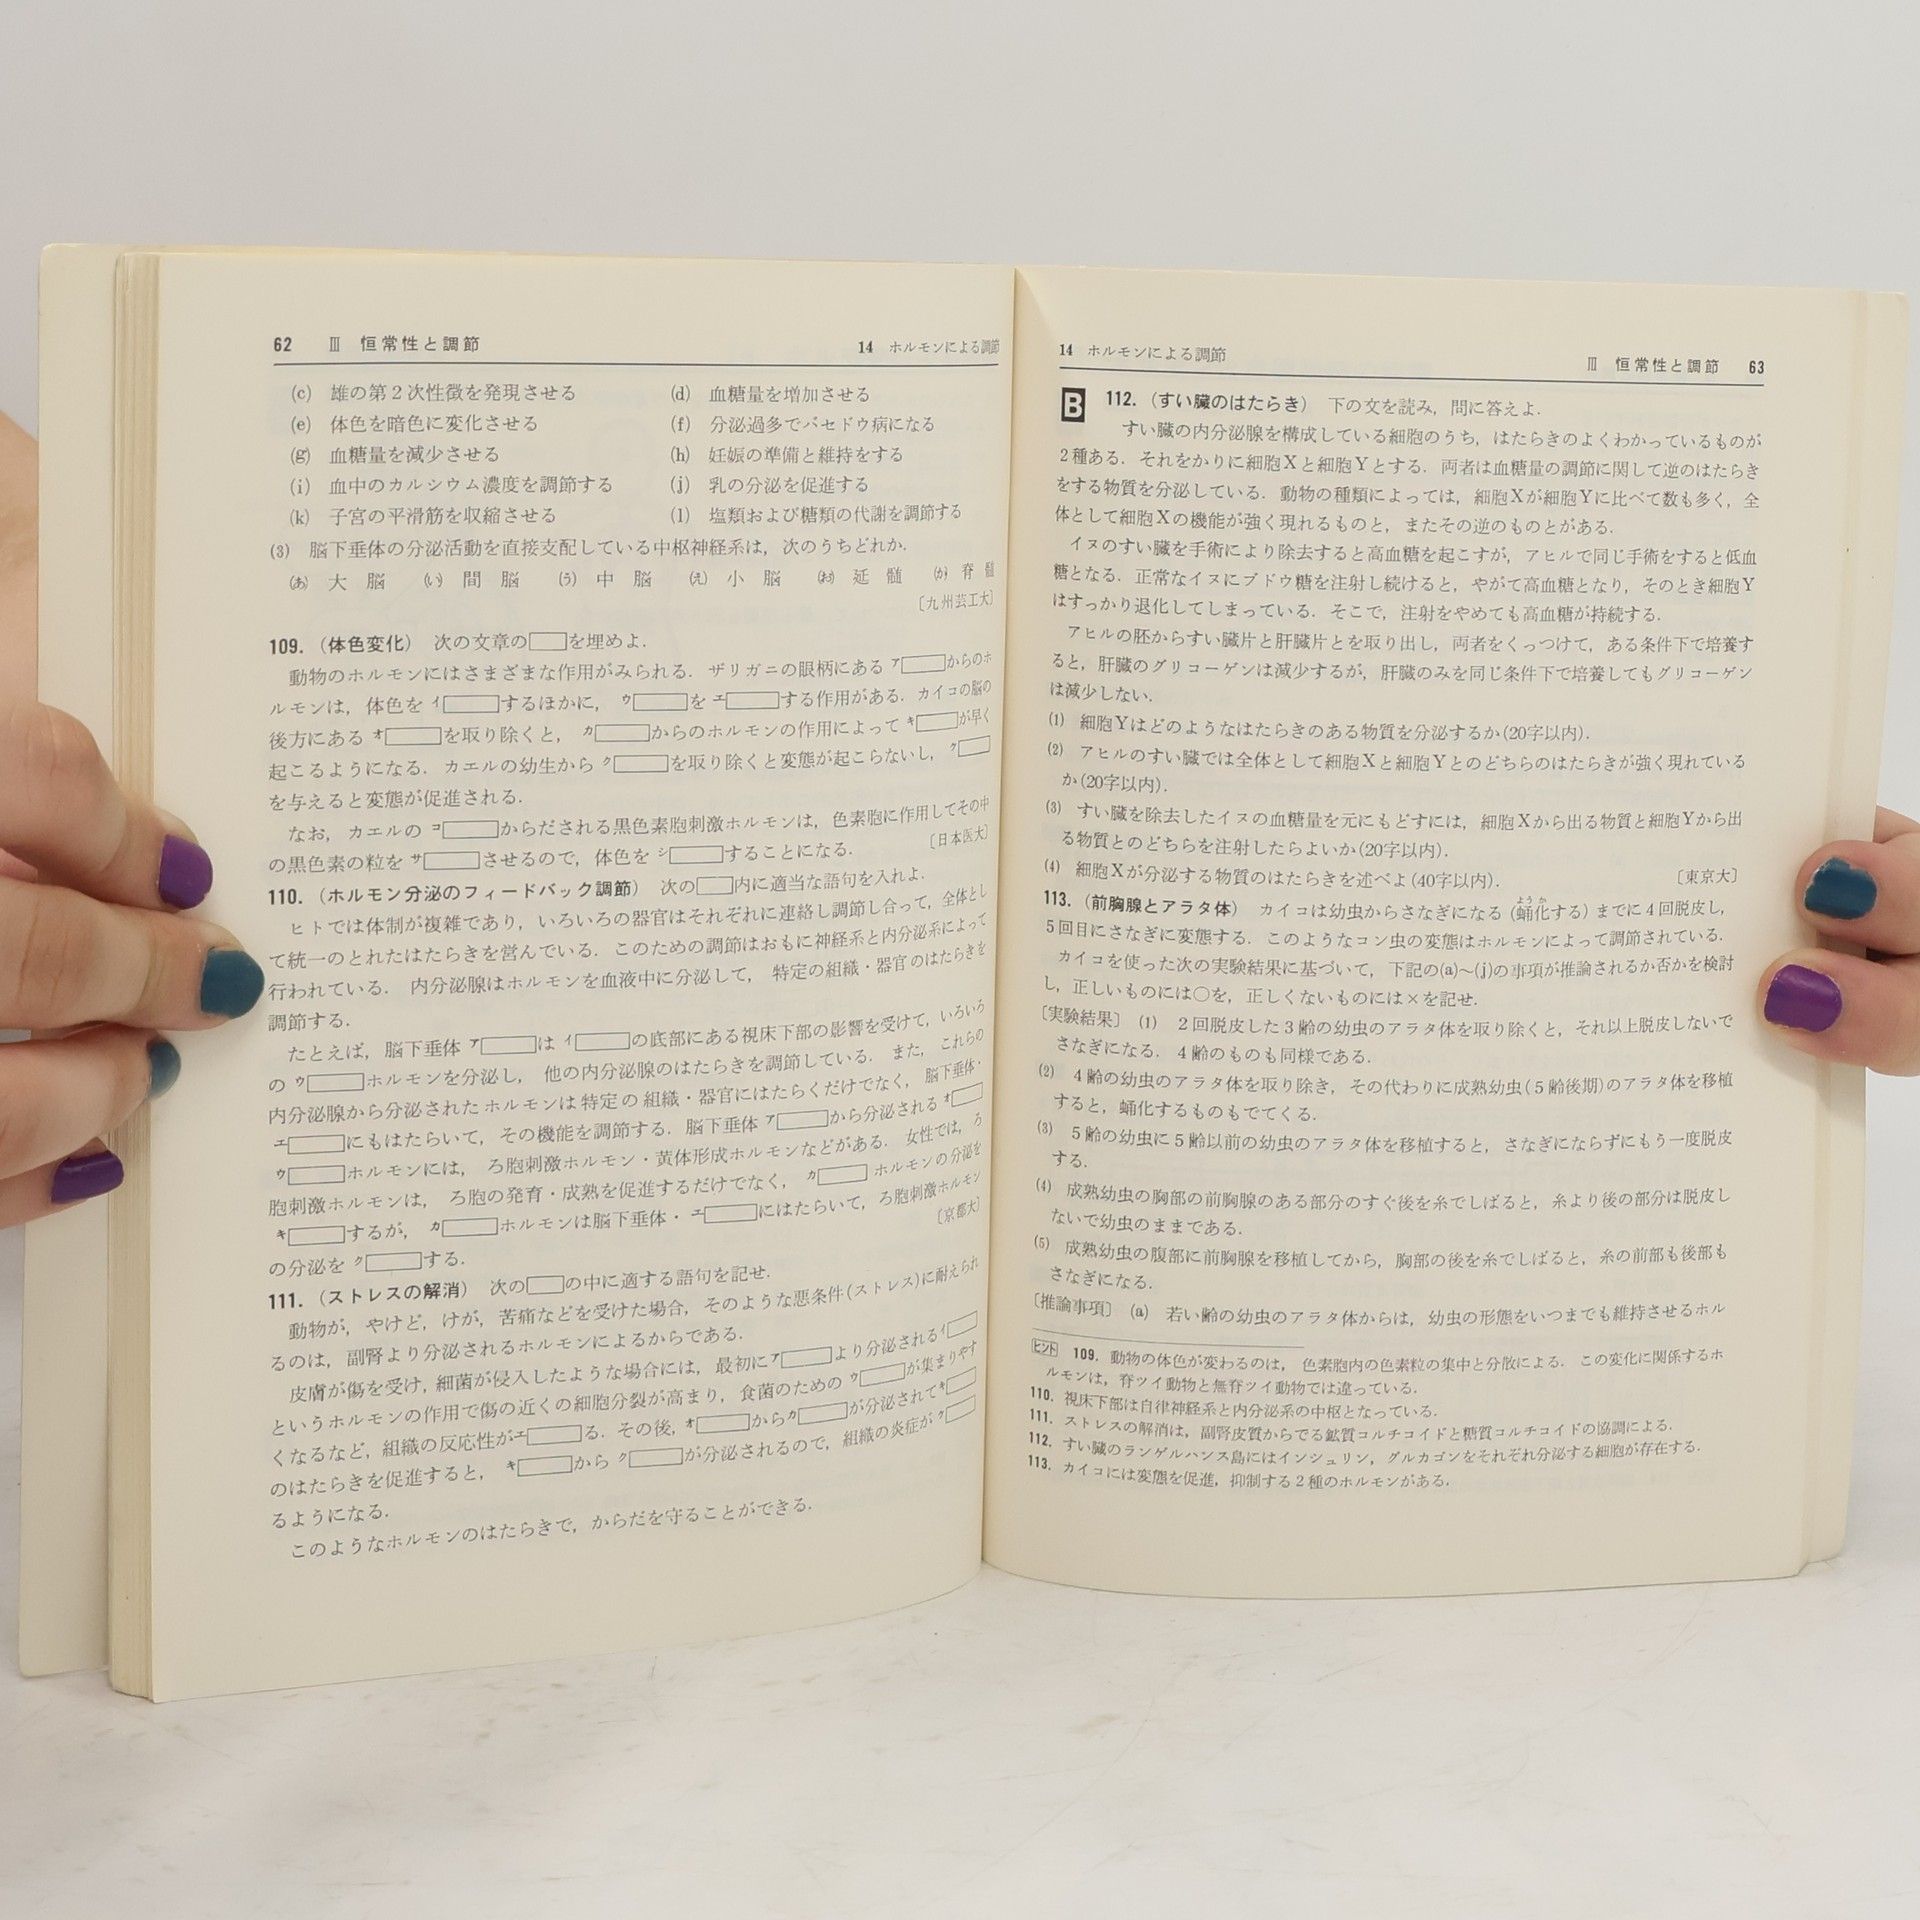 62 Ⅲ 恒常性と調節 14 ホルモンによる調節
(c) 雄の第2次性徴を発現させる (d) 血糖量を増加させる
(e) 体色を暗色に変化させる (f) 分泌過多でバセドウ病になる
(g) 血糖量を減少させる (h) 妊娠の準備と維持をする
(i) 血中のカルシウム濃度を調節する (j) 乳の分泌を促進する
(k) 子宮の平滑筋を収縮させる (l) 塩類および糖類の代謝を調節する
(3) 脳下垂体の分泌活動を直接支配している中枢神経系は，次のうちどれか．
(あ) 大脳 (い) 間脳 (う) 中脳 (え) 小脳 (お) 延髄 (か) 脊髄
〔九州芸工大〕
109.（体色変化） 次の文章の□を埋めよ．
動物のホルモンにはさまざまな作用がみられる．ザリガニの眼柄にあるア□からのホ
ルモンは，体色をイ□するほかに，ウ□をエ□する作用がある．カイコの脳の
後方にあるオ□を取り除くと，カ□からのホルモンの作用によってキ□が早く
起こるようになる．カエルの幼生からク□を取り除くと変態が起こらないし，ク□
を与えると変態が促進される．
なお，カエルのコ□からだされる黒色素胞刺激ホルモンは，色素胞に作用してその中
の黒色素の粒をサ□させるので，体色をシ□することになる． 〔日本医大〕
110.（ホルモン分泌のフィードバック調節） 次の□内に適当な語句を入れよ．
ヒトでは体制が複雑であり，いろいろの器官はそれぞれに連絡し調節し合って，全体とし
て統一のとれたはたらきを営んでいる．このための調節はおもに神経系と内分泌系によって
行われている．内分泌腺はホルモンを血液中に分泌して，特定の組織・器官のはたらきを
調節する．
たとえば，脳下垂体ア□はイ□の底部にある視床下部の影響を受けて，いろいろ
のウ□ホルモンを分泌し，他の内分泌腺のはたらきを調節している．また，これらの
内分泌腺から分泌されたホルモンは特定の組織・器官にはたらくだけでなく，脳下垂体・
エ□にもはたらいて，その機能を調節する．脳下垂体ア□から分泌されるオ□
ウ□ホルモンには，ろ胞刺激ホルモン・黄体形成ホルモンなどがある．女性では，ろ
胞刺激ホルモンは，ろ胞の発育・成熟を促進するだけでなく，カ□ホルモンの分泌を
キ□するが，カ□ホルモンは脳下垂体・エ□にはたらいて，ろ胞刺激ホルモン
の分泌をク□する． 〔京都大〕
111.（ストレスの解消） 次の□の中に適する語句を記せ．
動物が，やけど，けが，苦痛などを受けた場合，そのような悪条件(ストレス)に耐えられ
るのは，副腎より分泌されるホルモンによるからである．
皮膚が傷を受け，細菌が侵入したような場合には，最初にア□より分泌されるイ□
というホルモンの作用で傷の近くの細胞分裂が高まり，食菌のためのウ□が集まりやす
くなるなど，組織の反応性がエ□る．その後，オ□からカ□が分泌されてキ□
のはたらきを促進すると，キ□からク□が分泌されるので，組織の炎症がク□
るようになる．
このようなホルモンのはたらきで，からだを守ることができる．
14 ホルモンによる調節 Ⅲ 恒常性と調節 63
B 112.（すい臓のはたらき） 下の文を読み，問に答えよ．
すい臓の内分泌腺を構成している細胞のうち，はたらきのよくわかっているものが
2種ある．それをかりに細胞Xと細胞Yとする．両者は血糖量の調節に関して逆のはたらき
をする物質を分泌している．動物の種類によっては，細胞Xが細胞Yに比べて数も多く，全
体として細胞Xの機能が強く現れるものと，またその逆のものとがある．
イヌのすい臓を手術により除去すると高血糖を起こすが，アヒルで同じ手術をすると低血
糖となる．正常なイヌにブドウ糖を注射し続けると，やがて高血糖となり，そのとき細胞Y
はすっかり退化してしまっている．そこで，注射をやめても高血糖が持続する．
アヒルの胚からすい臓片と肝臓片とを取り出し，両者をくっつけて，ある条件下で培養す
ると，肝臓のグリコーゲンは減少するが，肝臓のみを同じ条件下で培養してもグリコーゲン
は減少しない．
(1) 細胞Yはどのようなはたらきのある物質を分泌するか(20字以内)．
(2) アヒルのすい臓では全体として細胞Xと細胞Yとのどちらのはたらきが強く現れている
か(20字以内)．
(3) すい臓を除去したイヌの血糖量を元にもどすには，細胞Xから出る物質と細胞Yから出
る物質とのどちらを注射したらよいか(20字以内)．
(4) 細胞Xが分泌する物質のはたらきを述べよ(40字以内)． 〔東京大〕
113.（前胸腺とアラタ体） カイコは幼虫からさなぎになる（蛹化ようかする）までに4回脱皮し，
5回目にさなぎに変態する．このようなコン虫の変態はホルモンによって調節されている．
カイコを使った次の実験結果に基づいて，下記の(a)～(j)の事項が推論されるか否かを検討
し，正しいものには○を，正しくないものには×を記せ．
〔実験結果〕 (1) 2回脱皮した3齢の幼虫のアラタ体を取り除くと，それ以上脱皮しないで
さなぎになる．4齢のものも同様である．
(2) 4齢の幼虫のアラタ体を取り除き，その代わりに成熟幼虫(5齢後期)のアラタ体を移植
すると，蛹化するものもでてくる．
(3) 5齢の幼虫に5齢以前の幼虫のアラタ体を移植すると，さなぎにならずにもう一度脱皮
する．
(4) 成熟幼虫の胸部の前胸腺のある部分のすぐ後を糸でしばると，糸より後の部分は脱皮し
ないで幼虫のままである．
(5) 成熟幼虫の腹部に前胸腺を移植してから，胸部の後を糸でしばると，糸の前部も後部も
さなぎになる．
〔推論事項〕 (a) 若い齢の幼虫のアラタ体からは，幼虫の形態をいつまでも維持させるホル
ヒント 109. 動物の体色が変わるのは，色素胞内の色素粒の集中と分散による．この変化に関係するホ
ルモンは，脊ツイ動物と無脊ツイ動物では違っている．
110. 視床下部は自律神経系と内分泌系の中枢となっている．
111. ストレスの解消は，副腎皮質からでる鉱質コルチコイドと糖質コルチコイドの協調による．
112. すい臓のランゲルハンス島にはインシュリン，グルカゴンをそれぞれ分泌する細胞が存在する．
113. カイコには変態を促進，抑制する2種のホルモンがある．